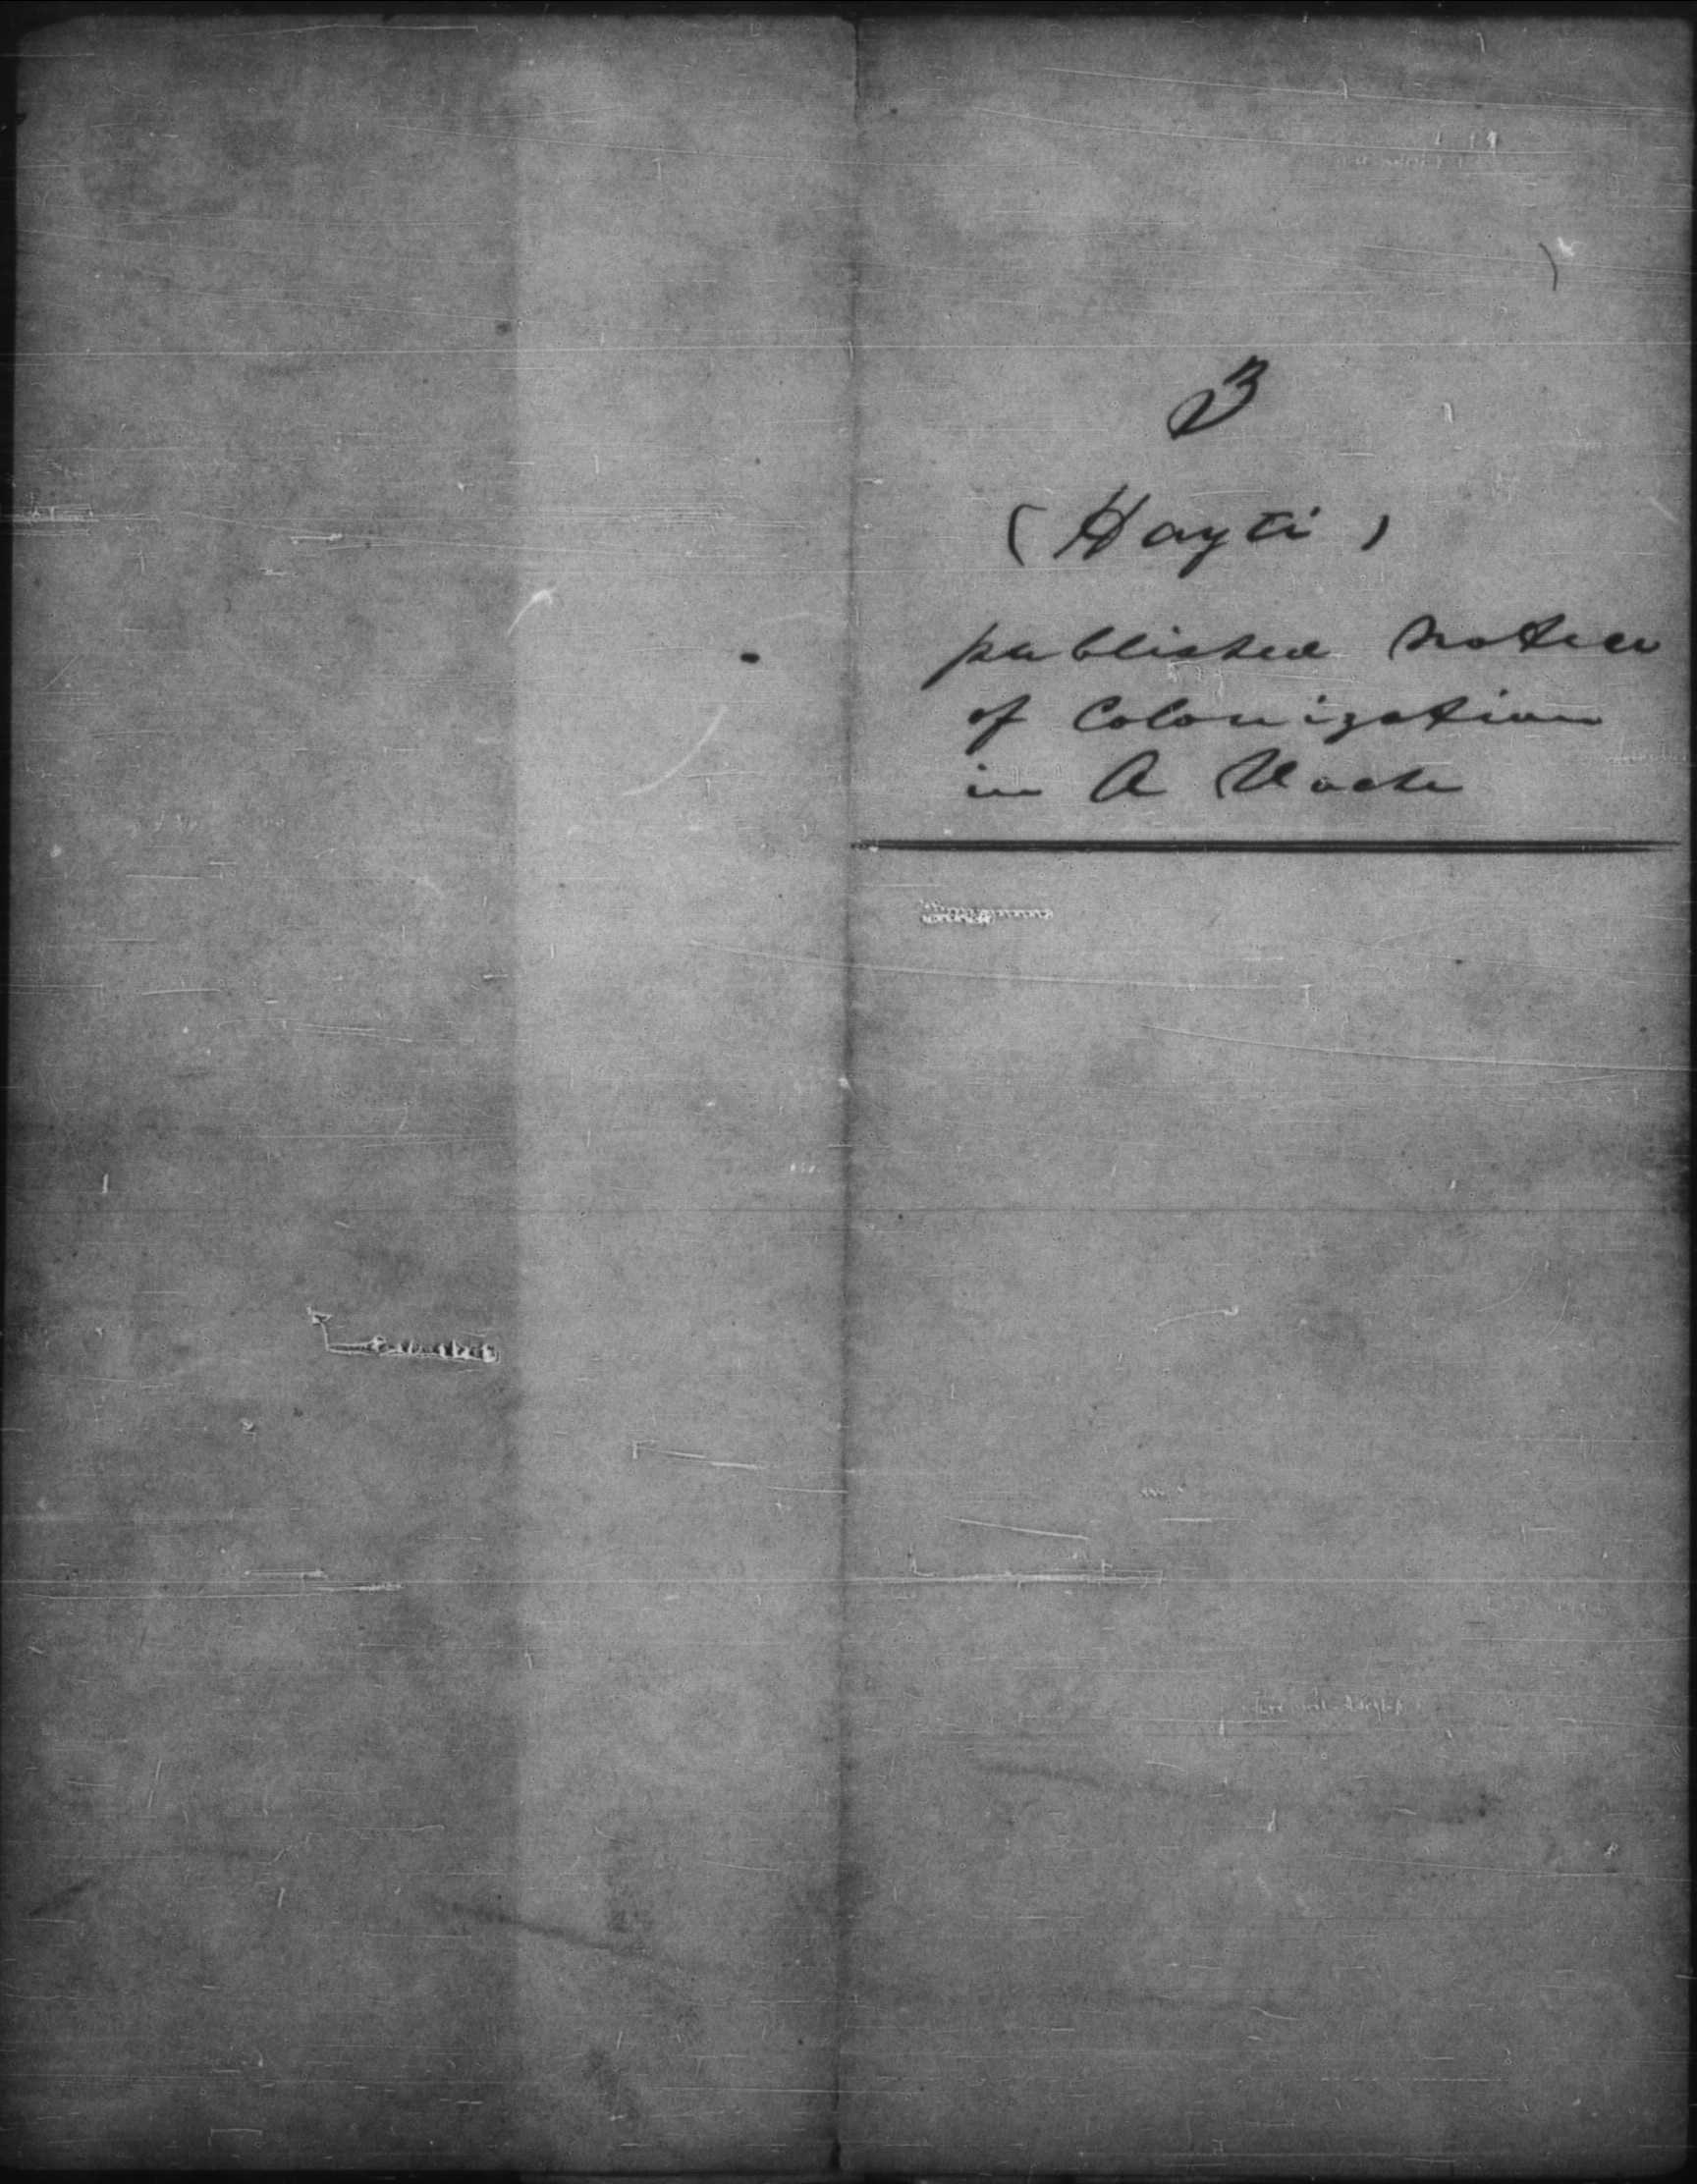 3
(Hayti)
published notice
of Colonization
in A Vache